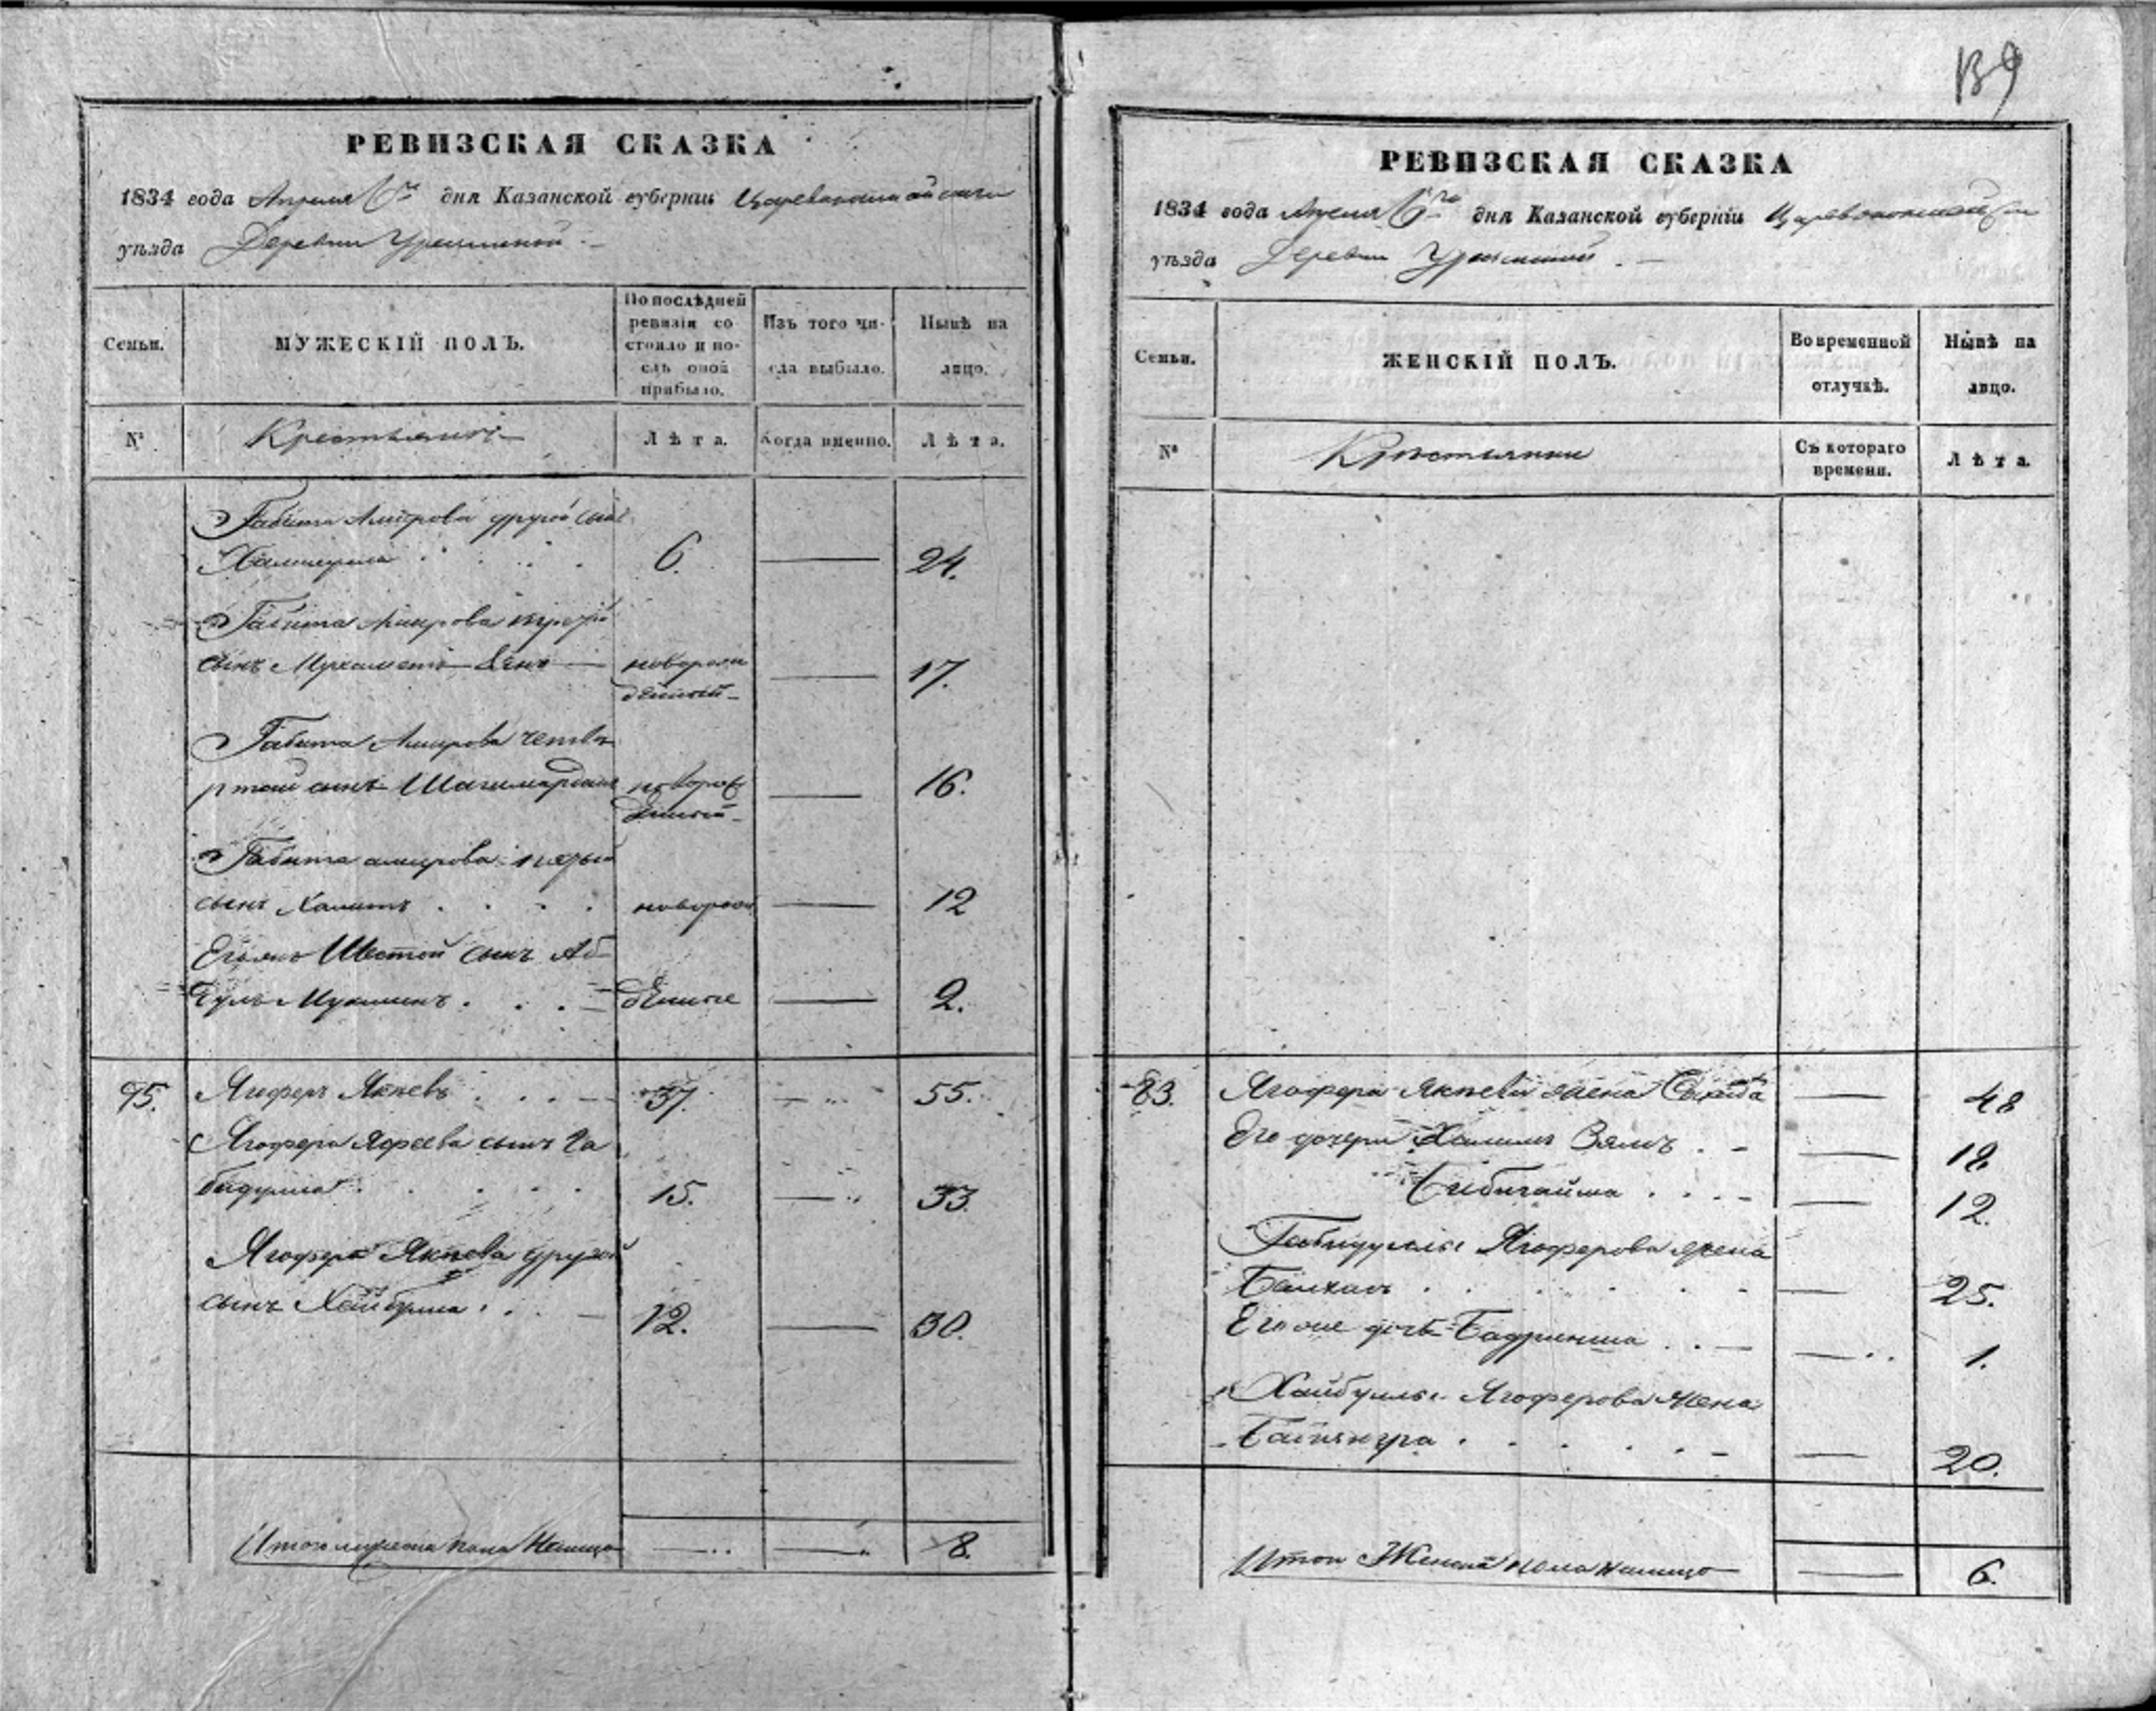 139
РЕВИЗСКАЯ СКАЗКА
1834 года Апреля дня Казанской губерніи Царевококшайской
уѣзда Деревни
Семьи.
МУЖЕСКІЙ ПОЛЪ.
По послѣдней ревизіи состояло и послѣ оной прибыло.
Изъ того числа выбыло.
Нынѣ на лицо.
№
Крестьяне
Лѣта.
Когда именно.
Лѣта.
Габита Амирова другой сынъ
6. 24.
Габита Амирова третій
сынъ Мухаметъ новорож 17.
денной
Габита Амирова четве
ртой сынъ Шагимарданъ новорож 16.
денной
Габита амирова пятый
сынъ Хамитъ новорож 12
Шестой сынъ Аб
дулъ Мукминъ денные 2.
95. Ягоферъ Якпевъ 37. 55.
Ягофера сынъ Га
бидулла 15. 33.
Ягофера Якпева другой
сынъ Хайбулла 12. 30.
Итого мужеска пола Налицо 8.
РЕВИЗСКАЯ СКАЗКА
1834 года Апреля дня Казанской губерніи Царевококшайской
уѣзда Деревни
Семьи.
ЖЕНСКІЙ ПОЛЪ.
Во временной отлучкѣ.
Нынѣ на лицо.
№
Крестьянки
Съ котораго времени.
Лѣта.
Ягофера Якпева жена 48
Его дочери 18
Бибигайша 12.
Габидуллы Ягоферова жена
25.
Его же дочь 1.
Хайбуллы Ягоферова жена
20.
Итого Женска пола налицо 6.